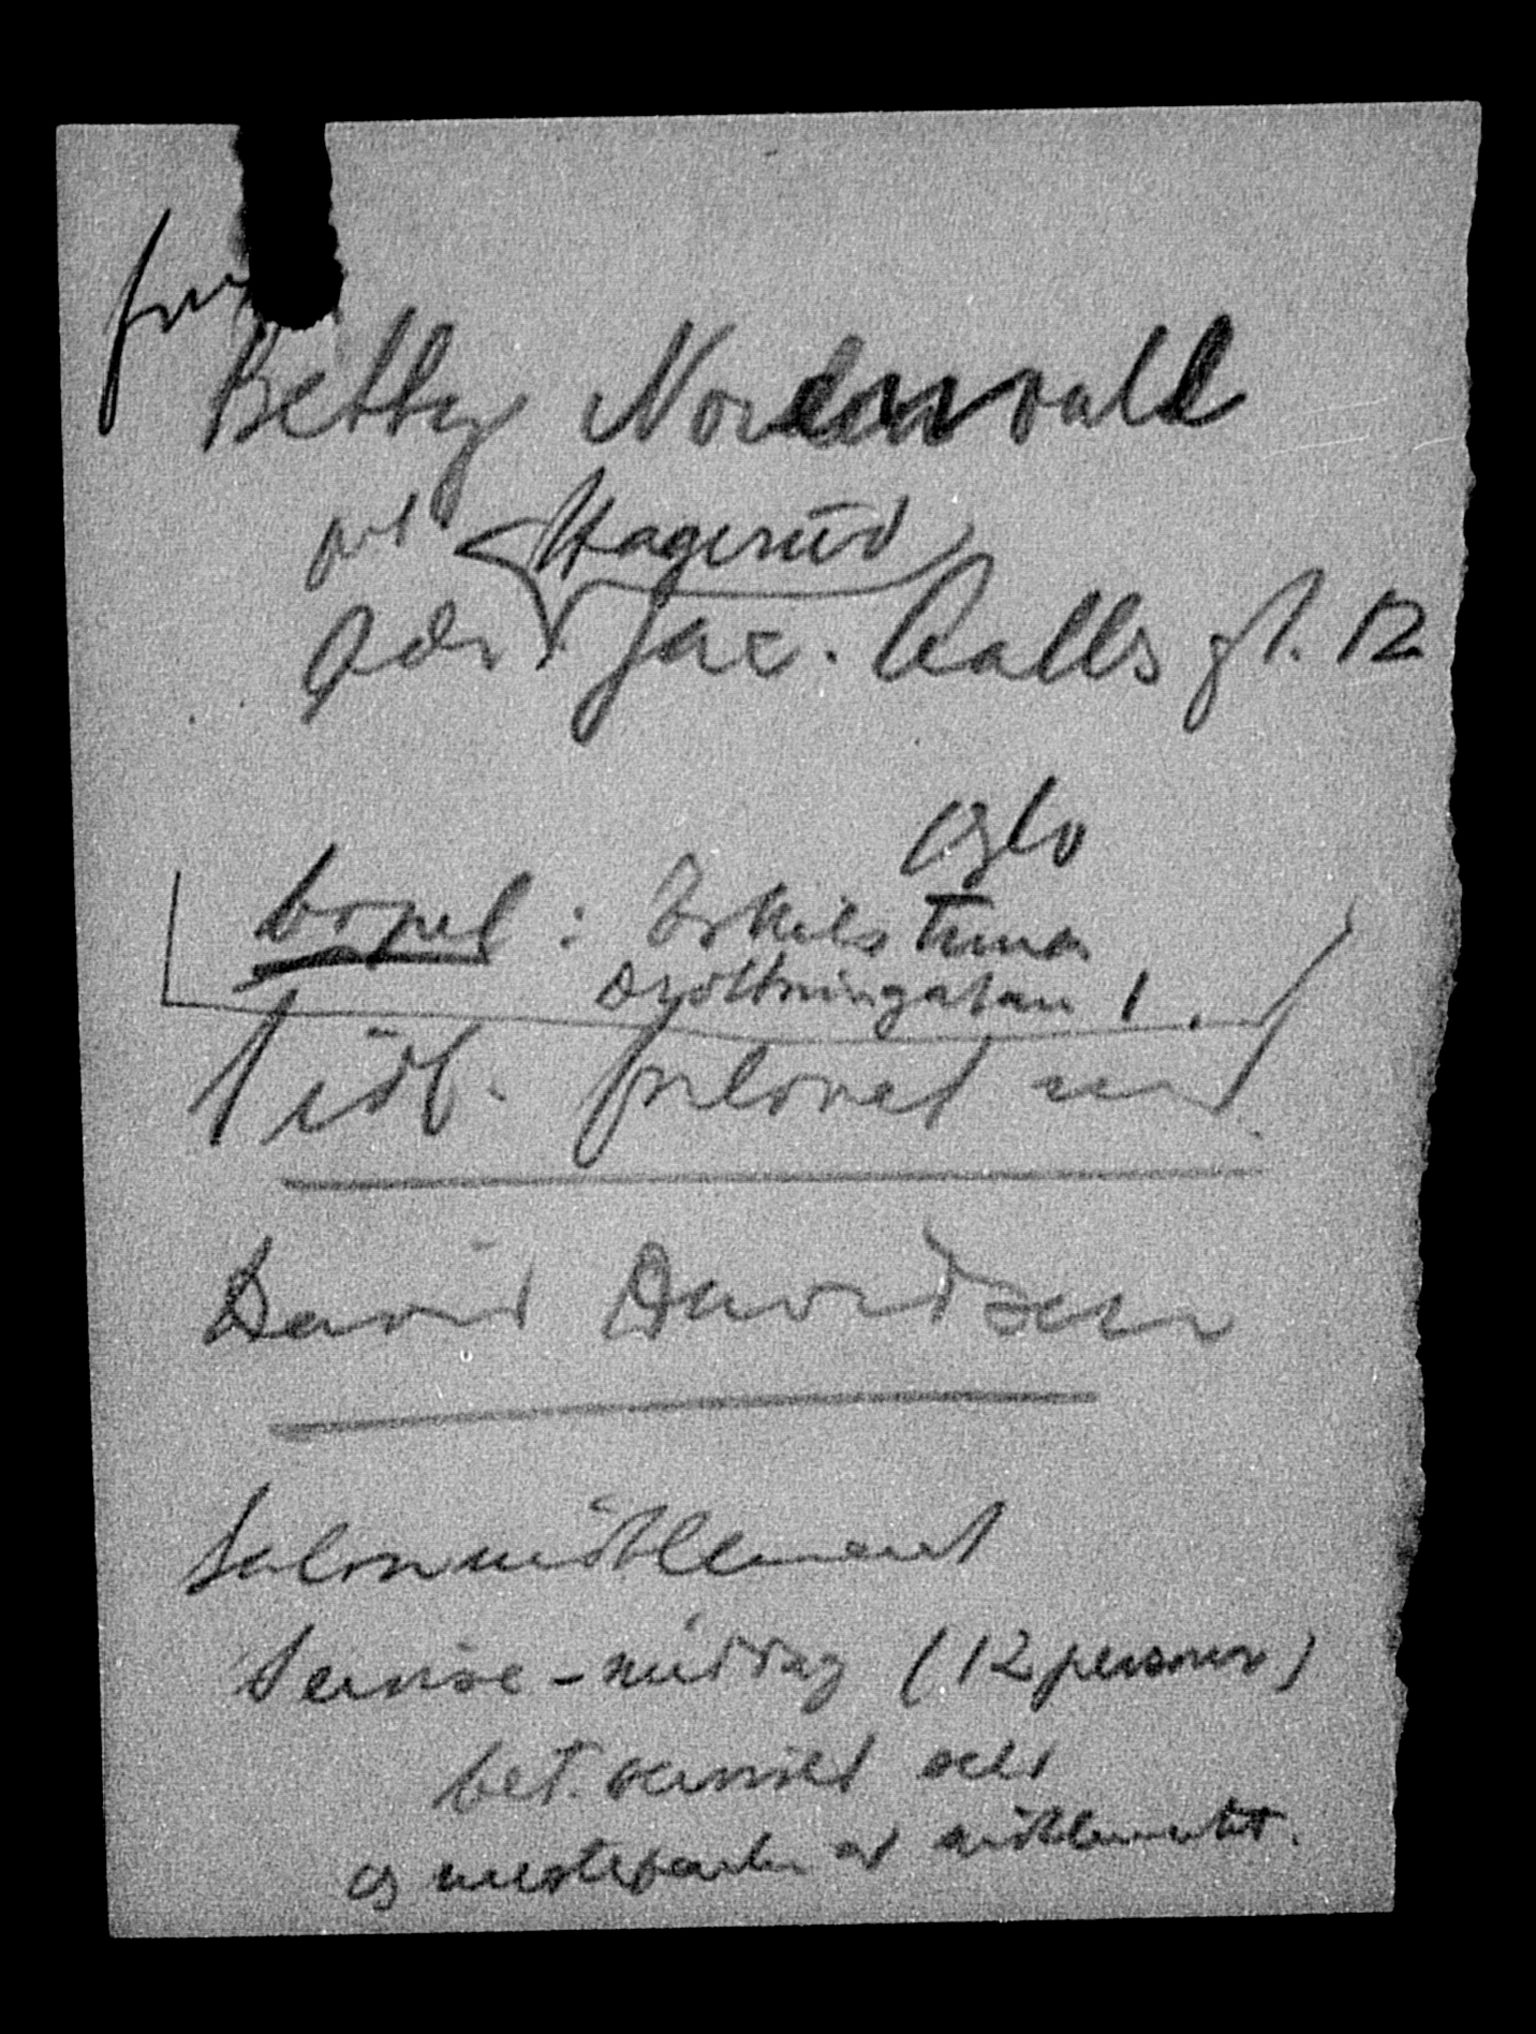 fru
Betty Nordenvall
pt. Hagerud
Adr Jac. Aalls gt. 12
Oslo
bopel: Eskilstuna
Drottningatan 1.
Tidl. forlovet med
David Davidsen
Salonmøblement
Servise - middag (12 personer)
bet. serviset selv
og mesteparten av møblementet.